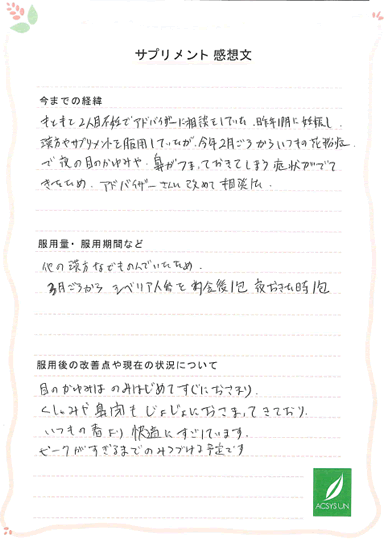 サプリメント 感想文
今までの経緯
もともと2人目不妊でアドバイザーに相談をしていた。昨年11月に妊娠し
漢方やサプリメントを服用していたが、今年2月ごろからいつもの花粉症
で夜の目のかゆみや、鼻がつまっておきてしまう症状がでて
きたため、アドバイザーさんに改めて相談した。
服用量・服用期間など
他の漢方などものんでいたため、
3月ごろから シベリア人参を お昼食後1包 夜おきた時1包
服用後の改善点や現在の状況について
目のかゆみは のみはじめてすぐにおさまり、
くしゃみや鼻閉も じょじょにおさまってきており、
いつもの春より 快適にすごしています。
ピークがすぎるまでのみつづける予定です
ACSYS UN